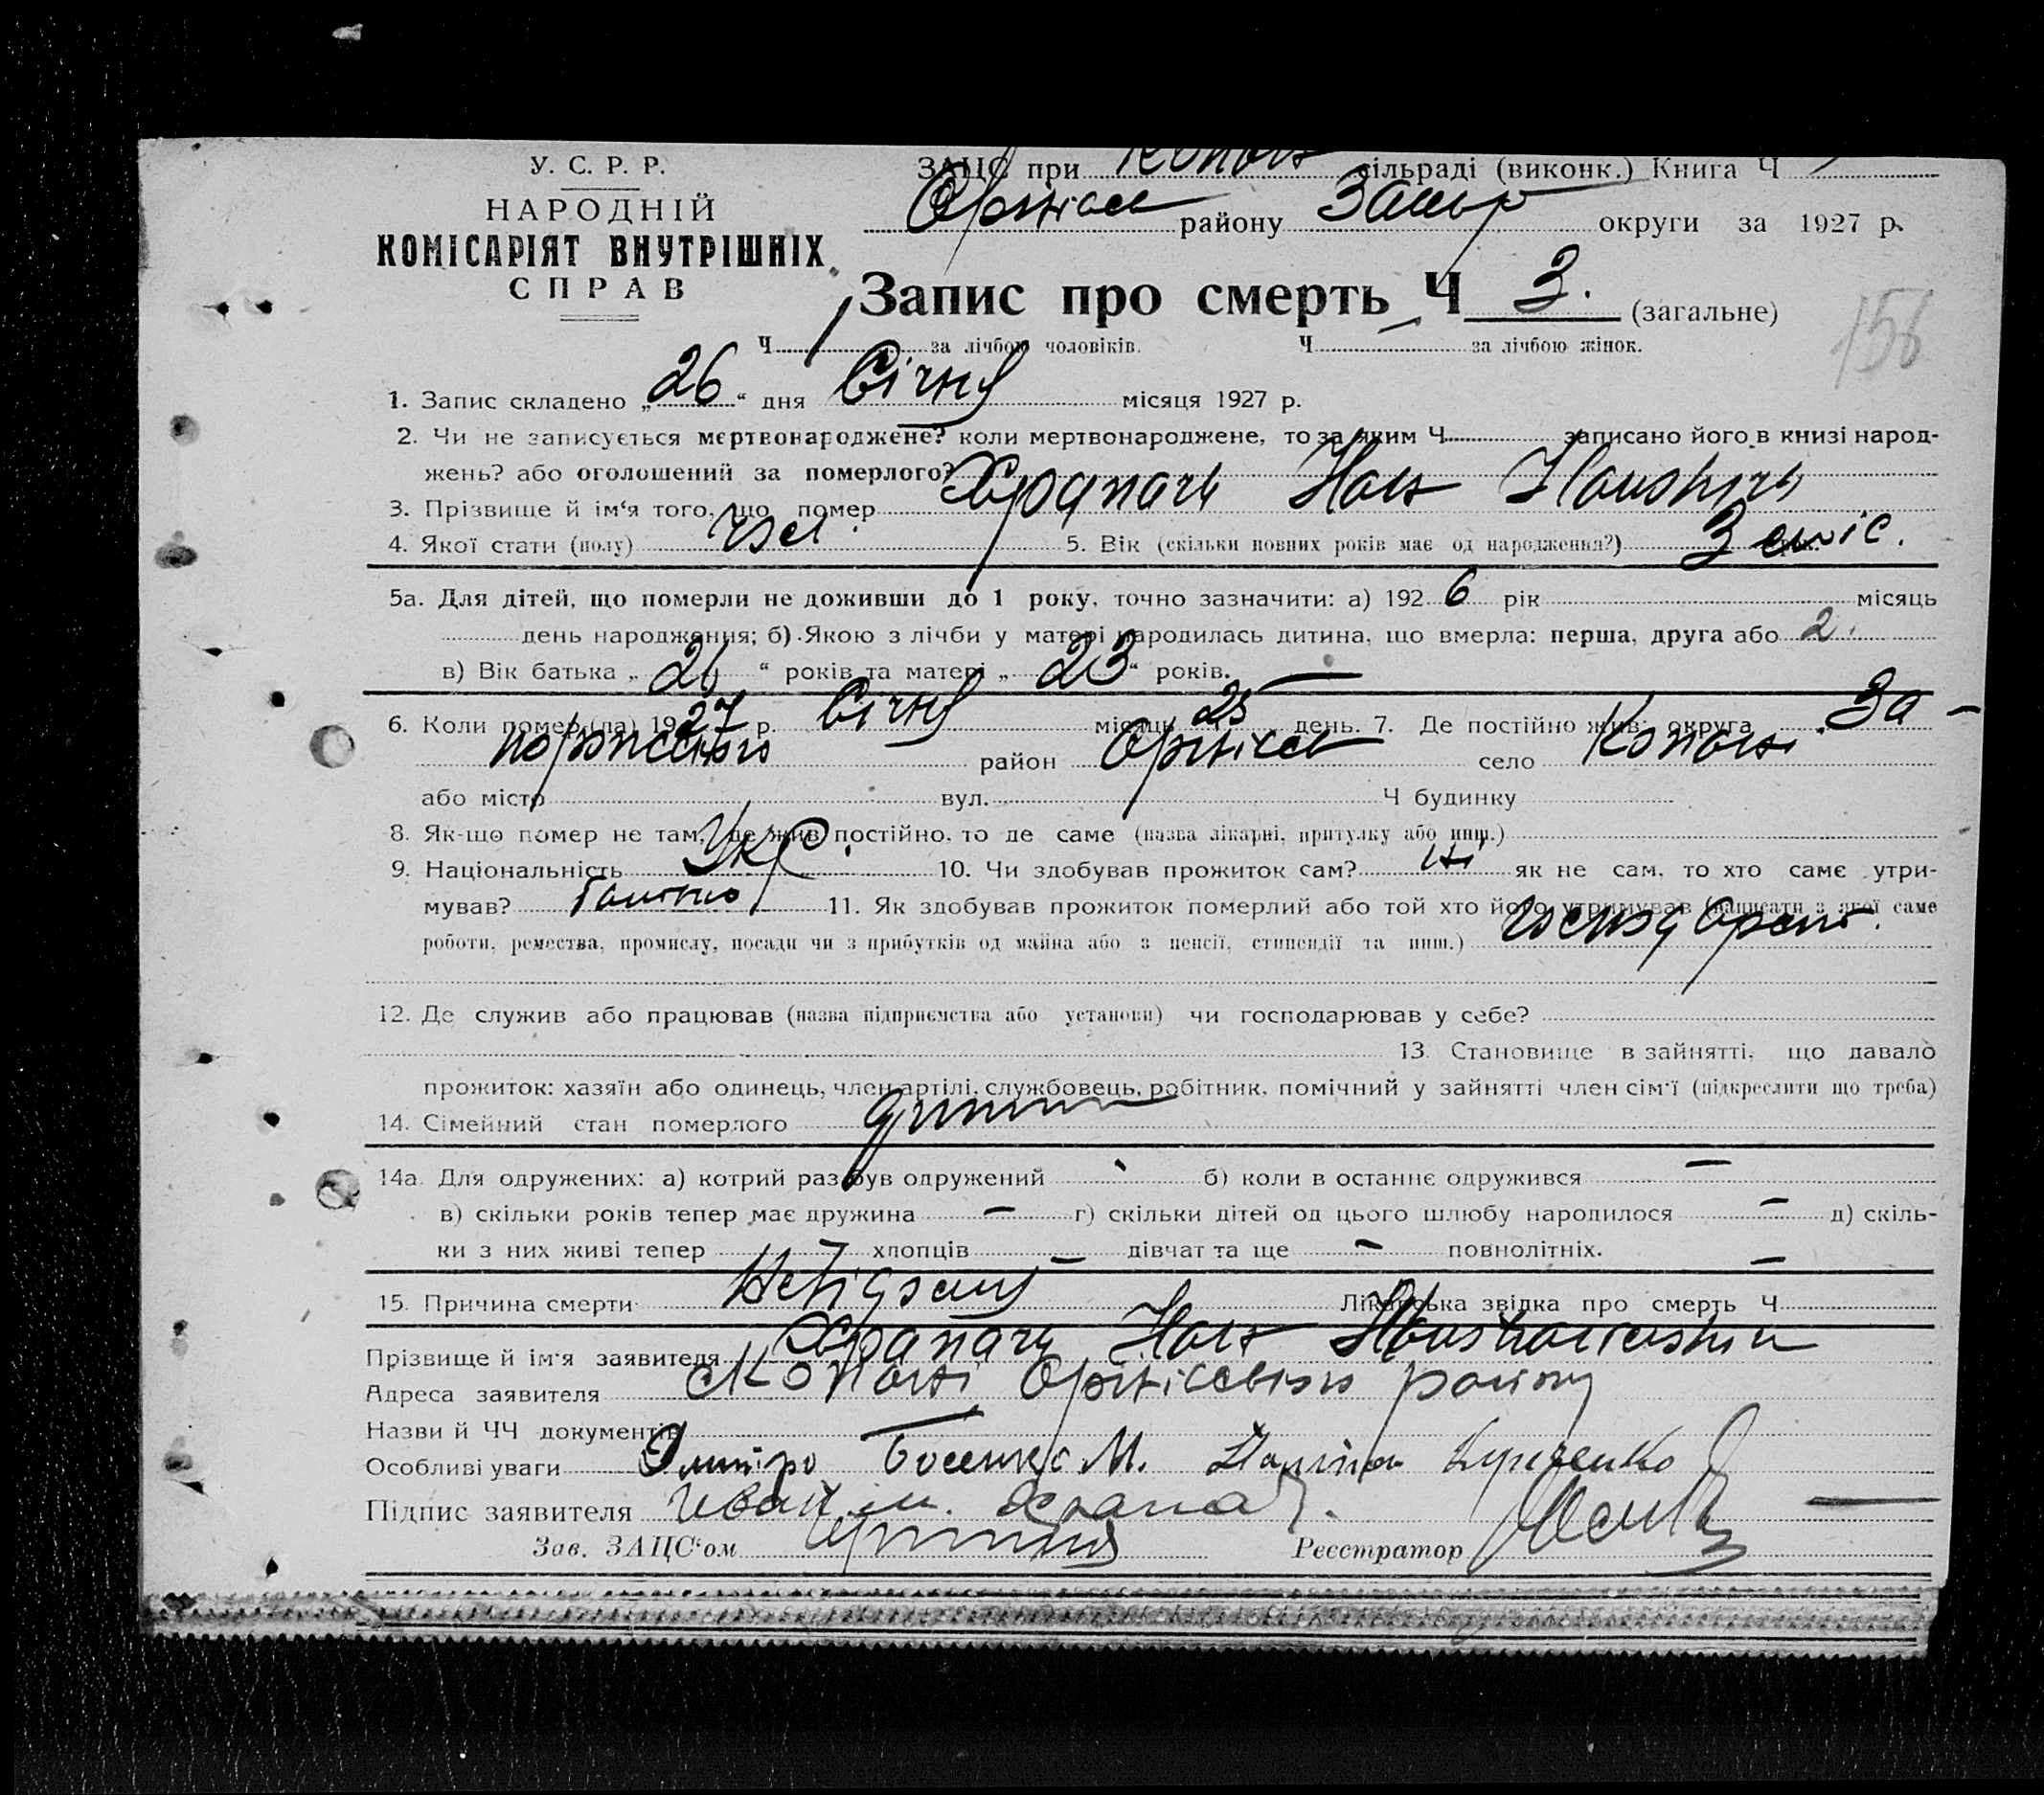 У. С. Р. Р.
НАРОДНІЙ
КОМІСАРІЯТ ВНУТРІШНІХ
СПРАВ
ЗАЦС при Копані сільраді (виконк.) Книга Ч
Оріхівськ району Запор округи за 1927 р.
Запис про смерть Ч 3. (загальне)
Ч 1 за лічбою чоловіків. Ч — за лічбою жінок.
156
1. Запис складено „26“ дня Січня місяця 1927 р.
2. Чи не записується мертвонароджене? коли мертвонароджене, то за яким Ч записано його в книзі народ-
жень? або оголошений за померлого?
3. Прізвище й ім‘я того, що помер Іван
4. Якої стати (полу) чол. 5. Вік (скільки повних років має од народження?) 3 міс.
5а. Для дітей, що померли не доживши до 1 року, точно зазначити: а) 1926 рік місяць
день народження; б) Якою з лічби у матері народилась дитина, що вмерла: перша, друга або 2.
в) Вік батька „ “ років та матері „23“ років. —
6. Коли помер (ла) 1927 р. Січня місяць 25 день. 7. Де постійно жив: округа За-
порижськ район Оріхівськ село Копані
або місто вул. Ч будинку
8. Як-що помер не там, де жив постійно, то де саме (назва лікарні, притулку або инш.)
9. Національність Укр. 10. Чи здобував прожиток сам? ні як не сам, то хто саме утри-
мував? батько 11. Як здобував прожиток померлий або той хто його утримував (написати з якої саме
роботи, ремества, промислу, посади чи з прибутків од майна або з пенсії, стипендії та инш.)
12. Де служив або працював (назва підприємства або установи) чи господарював у себе?
13. Становище в зайнятті, що давало
прожиток: хазяїн або одинець, член артілі, службовець, робітник, помічний у зайнятті член сім‘ї (підкреслити що треба)
14. Сімейний стан померлого дитина
14а. Для одружених: а) котрий раз був одружений б) коли в останнє одружився —
в) скільки років тепер має дружина — г) скільки дітей од цього шлюбу народилося — д) скіль-
ки з них живі тепер — хлопців — дівчат та ще — повнолітніх. —
15. Причина смерти Невідома Лікарська звідка про смерть Ч
Прізвище й ім‘я заявителя Храпач Іван
Адреса заявителя с Копані Оріхівського району
Назви й ЧЧ документів —
Особливі уваги Дмитро М.
Підпис заявителя Іван Храпач
Зав. ЗАЦС‘ом Реєстратор